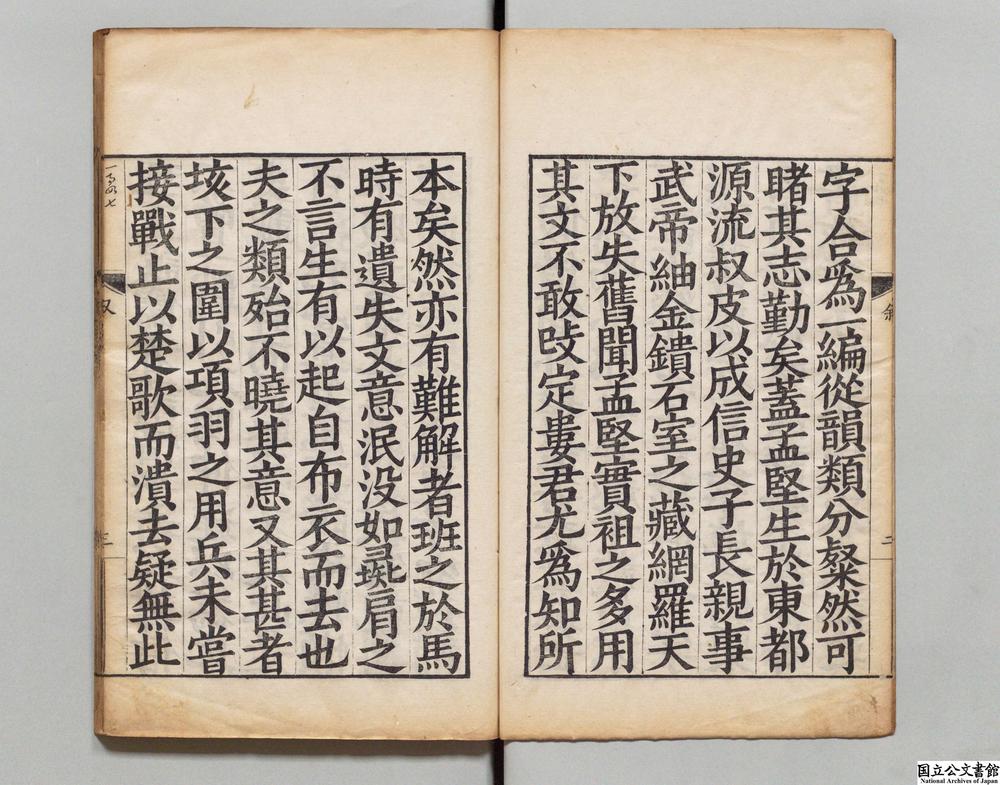 字合爲一編從韻類分粲然可
睹其志勤矣蓋孟堅生於東都
源流叔皮以成信史子長親事
武帝紬金鐀石室之藏網羅天
下放失舊聞孟堅實祖之多用
其文不敢攺定婁君尤爲知所
本矣然亦有難解者班之於馬
時有遺失文意泯没如彘肩之
不言生有以起自布衣而去也
夫之類殆不曉其意又其甚者
垓下之圍以項羽之用兵未嘗
接戰止以楚歌而潰去疑無此
二
三
国立公文書館
National Archives of Japan